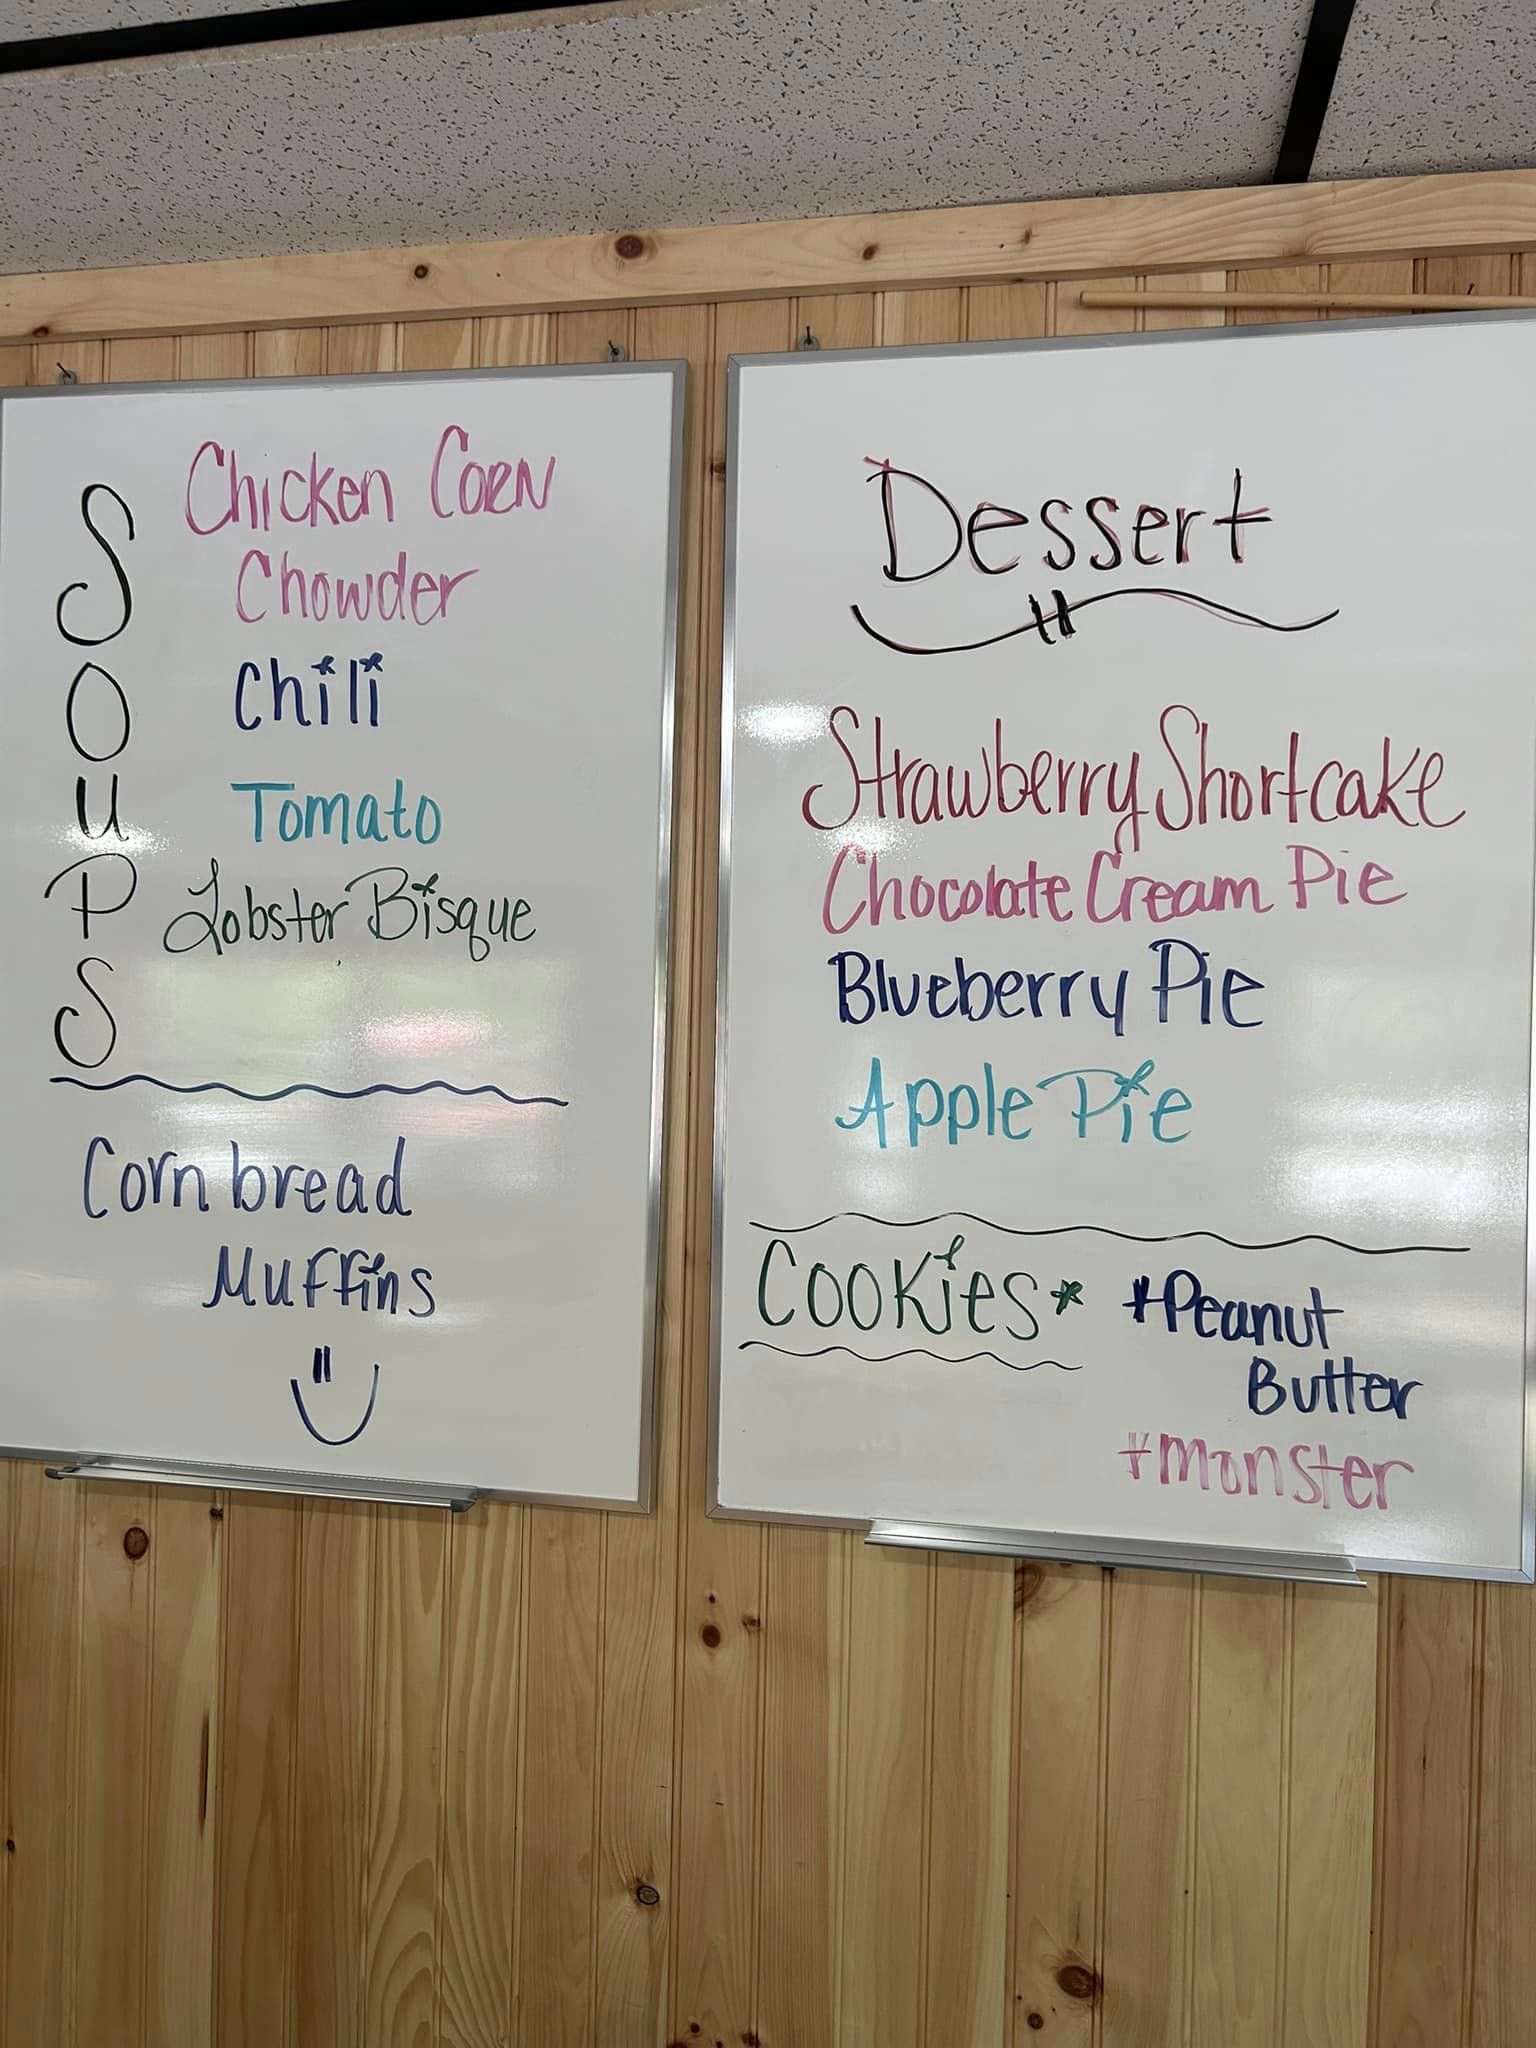 SOUPS
Chicken Corn
Chowder
Chili
Tomato
Lobster Bisque
Corn bread
Muffins
Dessert
Strawberry Shortcake
Chocolate Cream Pie
Blueberry Pie
Apple Pie
Cookies*
*Peanut
Butter
*Monster